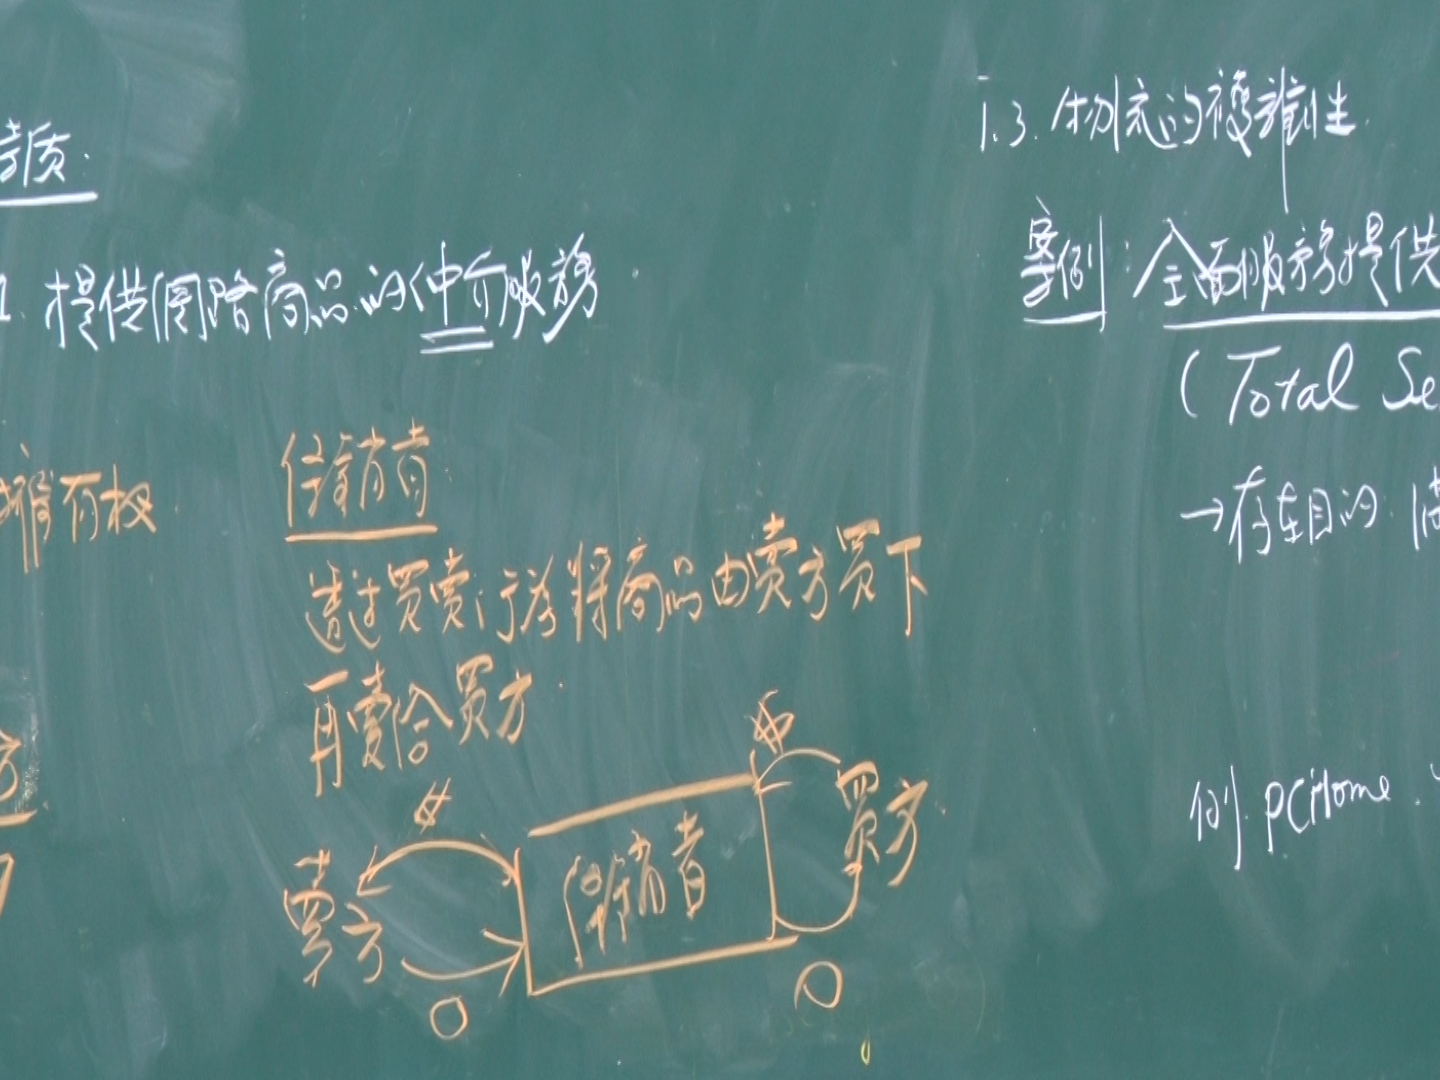 特质.
1. 提供网路商品的仲介服務.
擁有权
经銷者.
透过买卖行為将商品由卖方买下
再賣给买方.
$
$
卖方
经銷者
买方.
1.3. 物流的複雜性.
案例: 全面服務提供
(Total Se
→存在目的.
例. PCHome.